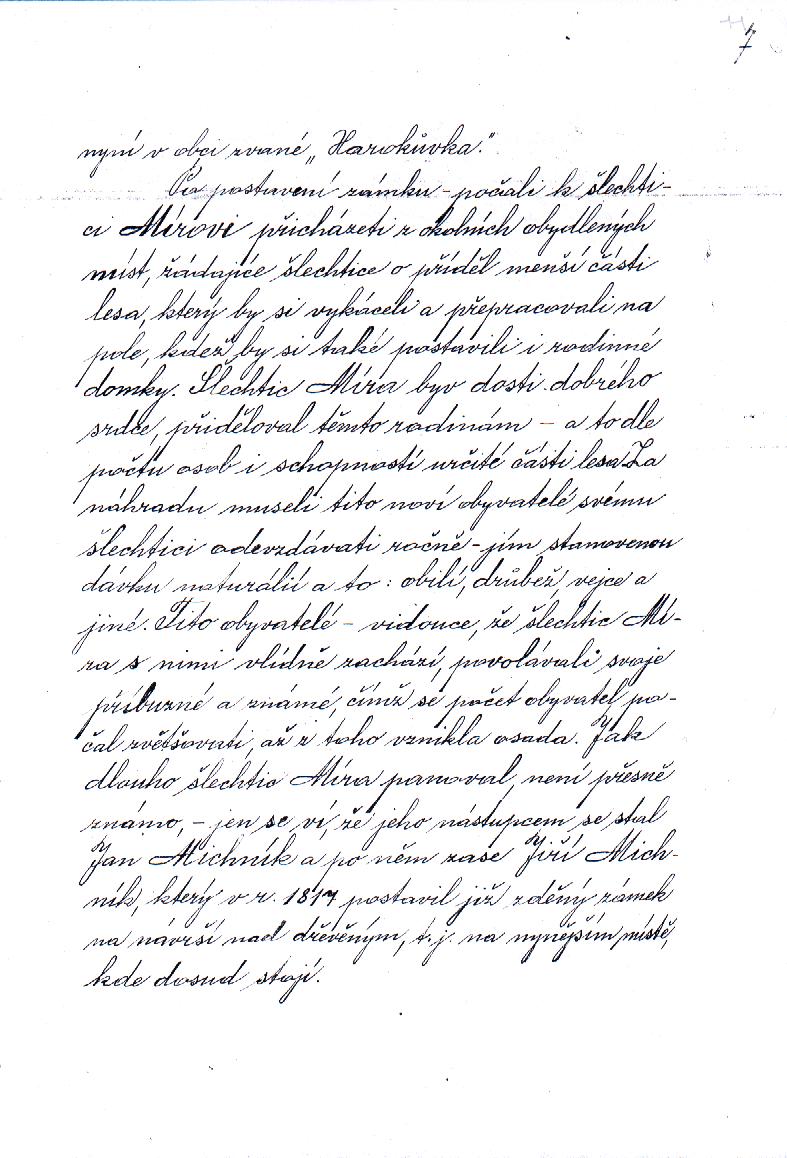 7
nyní v obci zvané „Harokůvka."
Po postavení zámku - počali k šlechti-
ci Mírovi přicházeti z okolních obydlených
míst, žádajíce šlechtice o příděl menší části
lesa, který by si vykáceli a přepracovali na
pole, kdež by si také postavili i rodinné
domky. Šlechtic Míra byv dosti dobrého
srdce, přiděloval těmto rodinám - a to dle
počtu osob i schopností určité části lesa. Za
náhradu museli tito noví obyvatelé svému
šlechtici odevzdávati ročně - jím stanovenou
dávku naturalií a to : obilí, drůbež, vejce a
jiné. Tito obyvatelé - vidouce, že šlechtic Mí-
ra s nimi vlídně zachází, povolávali svoje
příbuzné a známé, čímž se počet obyvatel po-
čal zvětšovati, až z toho vznikla osada. Jak
dlouho šlechtic Míra panoval, není přesně
známo, - jen se ví, že jeho nástupcem se stal
Jan Michník a po něm zase Jiří Mich-
ník, který v r. 1817 postavil již zděný zámek
na návrší nad dřevěným, t.j. na nynějším místě,
kde dosud stojí.